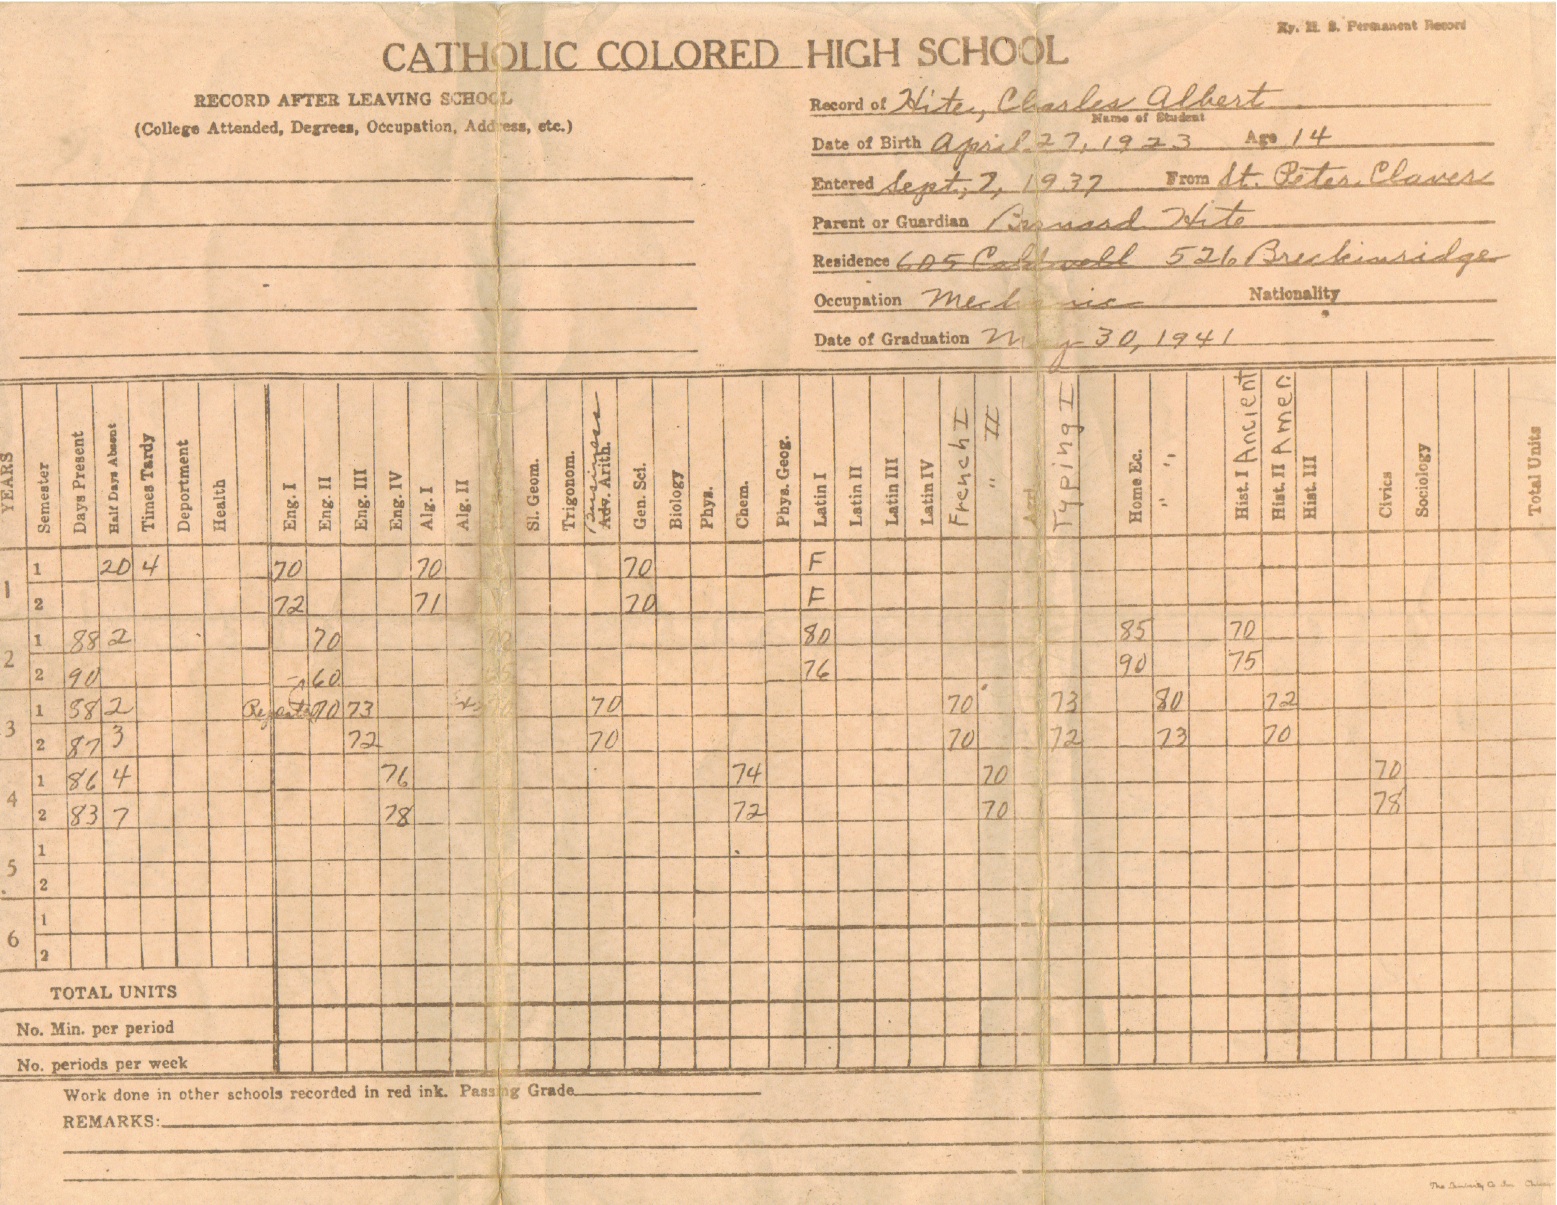 Ky. H. S. Permanent Record
CATHOLIC COLORED HIGH SCHOOL
RECORD AFTER LEAVING SCHOOL
(College Attended, Degrees, Occupation, Address, etc.)
Record of Hite, Charles Albert
Name of Student
Date of Birth April 27, 1923 Age 14
Entered Sept, 7, 1937 From St. Peter Claver
Parent or Guardian Bernard Hite
Residence 605 Caldwell 526 Breckinridge
Occupation Mechanic Nationality
Date of Graduation May 30, 1941
YEARS Semester Days Present Half Days Absent Times Tardy Department Health Eng. I Eng. II Eng. III Eng. IV Alg. I Alg. II Sl. Geom. Trigonom. Business Adv. Arith. Gen. Sci. Biology Phys. Chem. Phys. Geog. Latin I Latin II Latin III Latin IV French I " II Typing I Home Ec. " " Hist. I Ancient Hist. II Amer. Hist. III Civics Sociology Total Units
1 1 20 4 70 70 70 F
2 72 71 70 F
2 1 88 2 70 80 85 70
2 90 60 76 90 75
3 1 88 2 Repeated 70 73 70 70 73 80 72
2 87 3 72 70 70 72 73 70
4 1 86 4 76 74 70 70
2 83 7 78 72 70 78
5 1
2
6 1
2
TOTAL UNITS
No. Min. per period
No. periods per week
Work done in other schools recorded in red ink. Passing Grade
REMARKS: